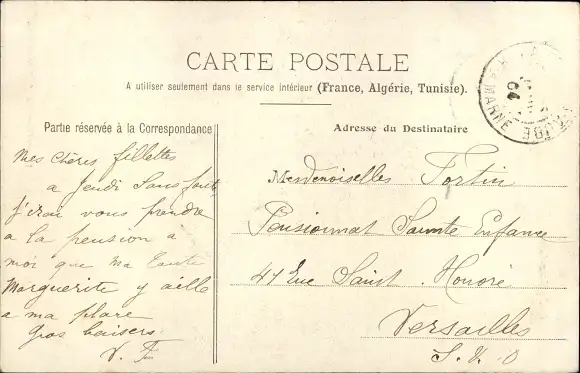 CARTE POSTALE
A utiliser seulement dans le service intérieur (France, Algérie, Tunisie).
Partie réservée à la Correspondance
Adresse du Destinataire
Mes chères fillettes
a Jeudi sans faute
j'irai vous prendre
a la pension a
moi que ma tante
Marguerite y aille
a ma place
Gros baisers
V. F
Mesdemoiselles Fortin
Pensionnat Sainte Enfance
41 Rue Saint Honoré
Versailles
S. & O
MARNE
04